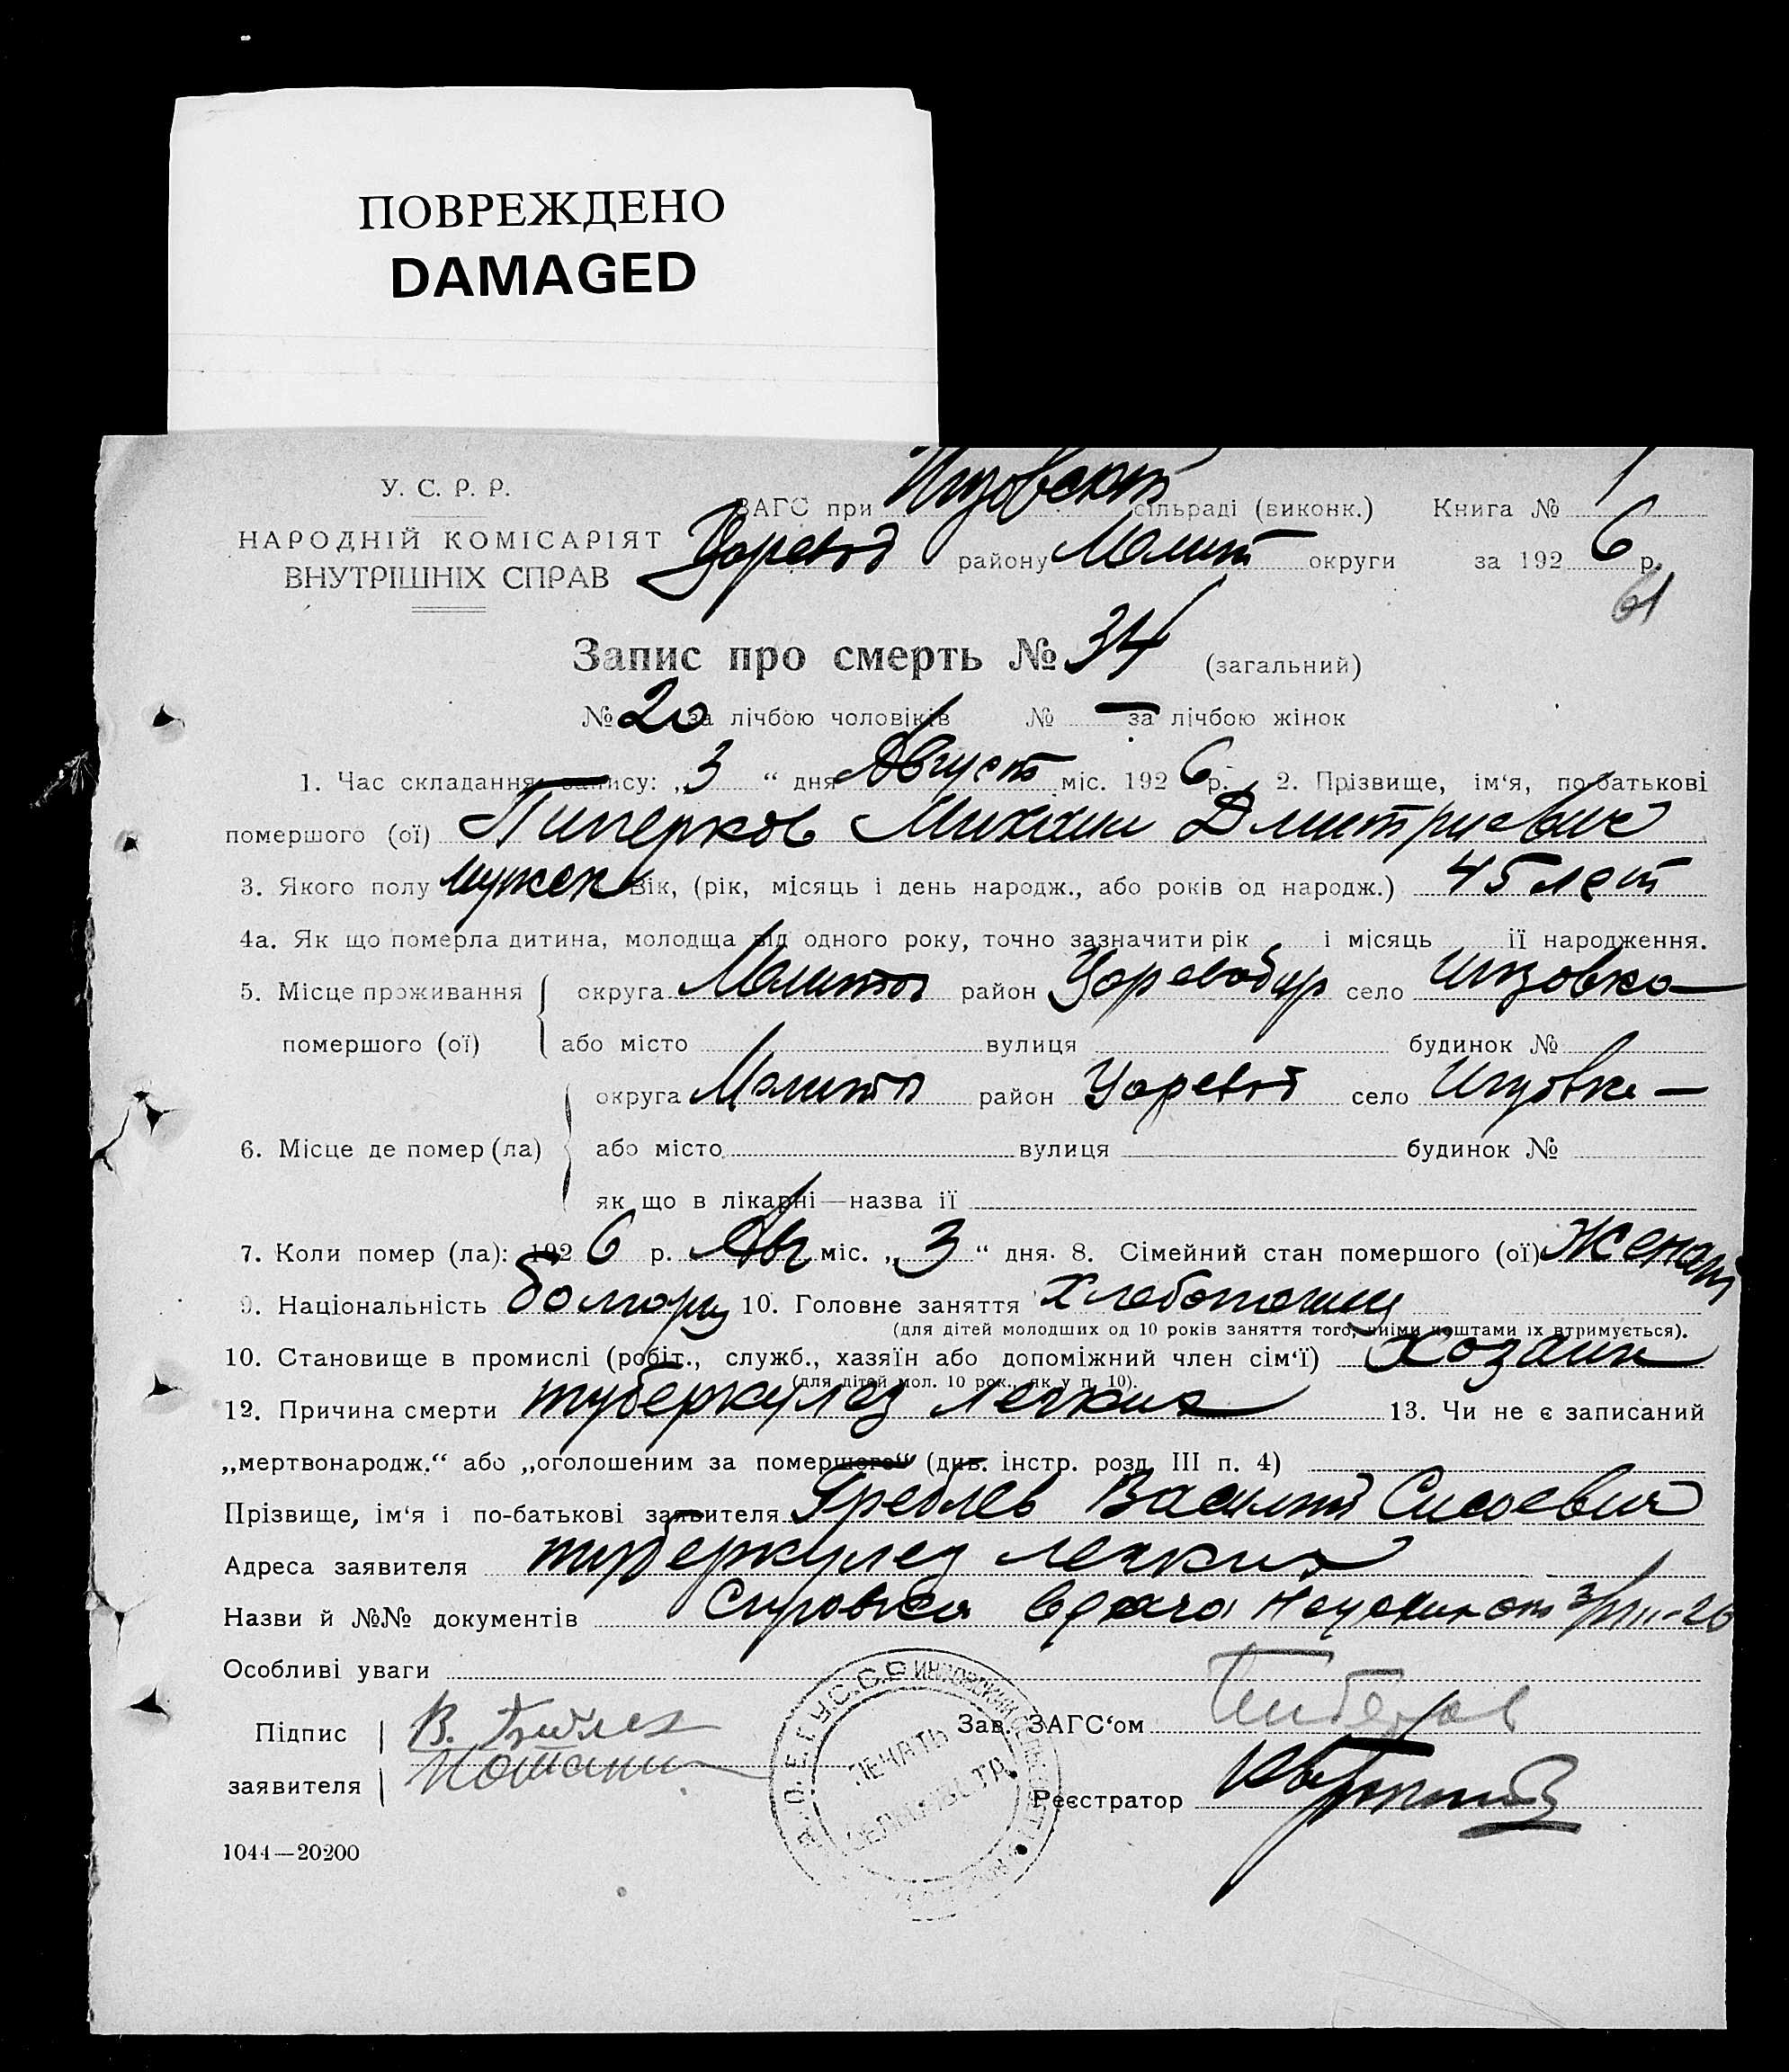 ПОВРЕЖДЕНО
DAMAGED
У. С. Р. Р.
НАРОДНІЙ КОМІСАРІЯТ
ВНУТРІШНІХ СПРАВ
ЗАГС при сільраді (виконк.) Книга № 1
Царевод району Мелит округи за 1926 р.
61
Запис про смерть № 34 (загальний)
№ 20 за лічбою чоловіків № — за лічбою жінок
1. Час складання запису: „3“ дня Август міс. 1926 р. 2. Прізвище, ім‘я, по-батькові
помершого (ої) Пиперков Михаил Дмитриевич
3. Якого полу мужск Вік, (рік, місяць і день народж., або років од народж.) 45 лет
4а. Як що померла дитина, молодща від одного року, точно зазначити рік і місяць її народження.
5. Місце проживання округа район село Инзовка
помершого (ої) або місто вулиця будинок №
округа район Царевод село Инзовка
6. Місце де помер (ла) або місто вулиця будинок №
як що в лікарні—назва її
7. Коли помер (ла): 1926 р. Авг міс. „3“ дня. 8. Сімейний стан помершого (ої) Женат
9. Національність болгарц 10. Головне заняття Хлебопашец
(для дітей молодших од 10 років заняття того, чиїми коштами їх втримується).
10. Становище в промислі (робіт., служб., хазяїн або допоміжний член сім‘ї) хозаин
(для дітей мол. 10 рок., як у п. 10).
12. Причина смерти туберкулез легких 13. Чи не є записаний
„мертвонародж.“ або „оголошеним за помершого“ (див. інстр. розд. III п. 4)
Прізвище, ім‘я і по-батькові заявителя Василий Сысоевич
Адреса заявителя туберкулез легких
Назви й №№ документів Справка врача от 3/VIII-26
Особливі уваги
Підпис В. Зав. ЗАГС‘ом
заявителя Реєстратор
ПЕЧАТЬ
1044—20200